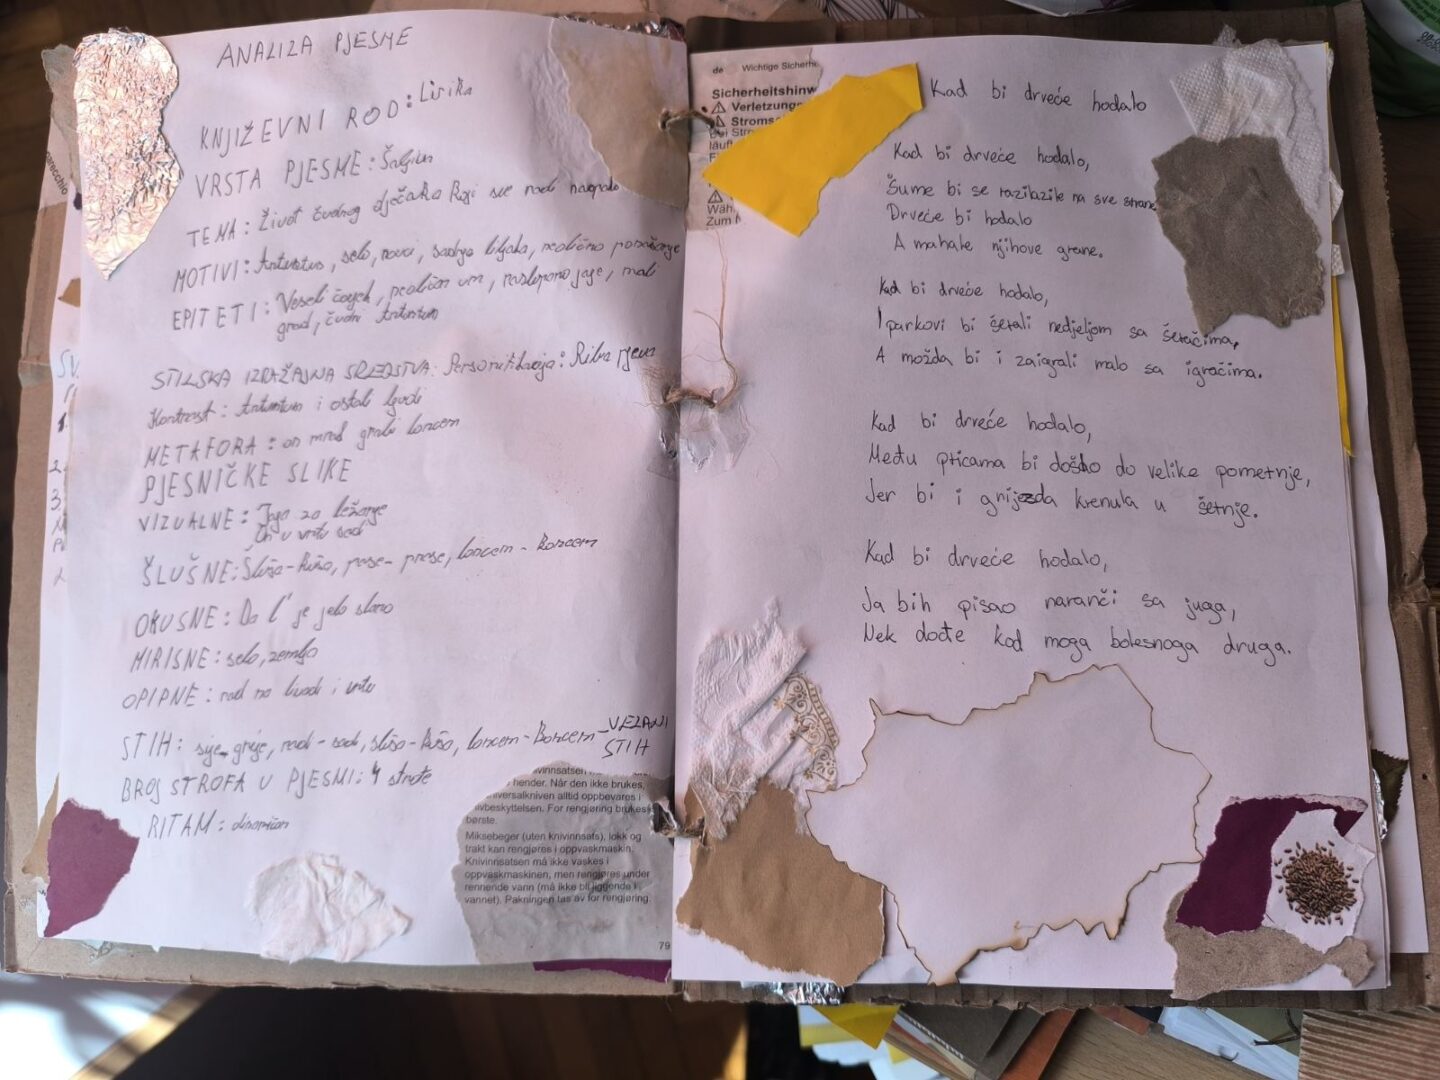 ANALIZA PJESME
KNJIŽEVNI ROD: Lirika
VRSTA PJESME: Šaljiva
TEMA: Život čudnog dječaka koji sve radi naopako
MOTIVI: Antuntun, selo, novci, sadnja biljaka, neobično ponašanje
EPITETI: Veseli čovjek, neobičan um, jaje, mali
grad, čudni Antuntun
STILSKA IZRAŽAJNA SREDSTVA: Personifikacija: Riba pjeva
Kontrast: Antuntun i ostali ljudi
METAFORA: on mrak grabi loncem
PJESNIČKE SLIKE
VIZUALNE: Jaja za leženje
On u vrtu sadi
ŠLUŠNE: Sluša-kuša, loncem-koncem
OKUSNE: Da l' je jelo slano
MIRISNE: selo, zemlja
OPIPNE: rad na livadi i vrtu
STIH: sije-grije, radi-sadi, sluša-kuša, loncem-koncem-VEZANI
STIH
BROJ STROFA U PJESMI: 4 strofe
RITAM: dinamičan
hender. Når den ikke brukes,
alltid oppbevares i
For rengjøring brukes
børste.
Miksebeger (uten knivinnsats), lokk og
trakt kan rengjøres i oppvaskmaskin.
Knivinnsatsen må ikke vaskes i
oppvaskmaskinen, men rengjøres under
rennende vann (må ikke bli liggende i
vannet). Pakningen tas av for rengjøring.
79
de Wichtige
Verletzungs
Kad bi drveće hodalo
Kad bi drveće hodalo,
Šume bi se razilazile na sve strane
Drveće bi hodalo
A mahale njihove grane.
Kad bi drveće hodalo,
I parkovi bi šetali nedjeljom sa šetačima,
A možda bi i zaigrali malo sa igračima.
Kad bi drveće hodalo,
Među pticama bi došlo do velike pometnje,
Jer bi i gnijezda krenula u šetnje.
Kad bi drveće hodalo,
Ja bih pisao naranči sa juga,
Nek dođe kod moga bolesnoga druga.